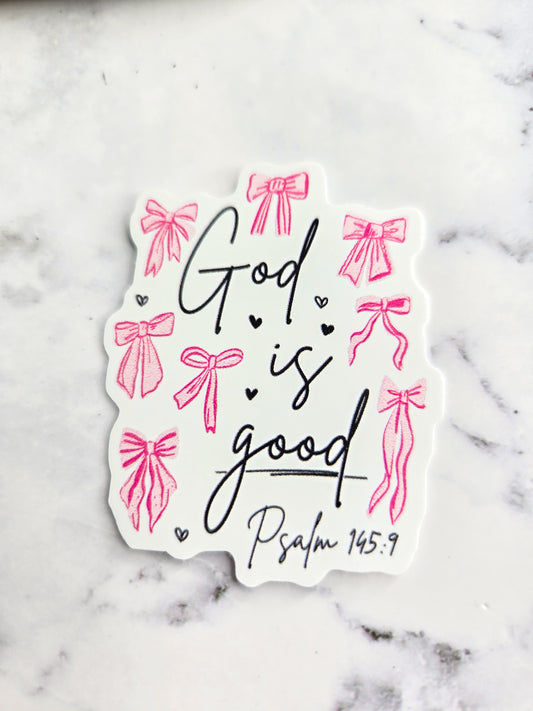 God
is
good
Psalm 145:9